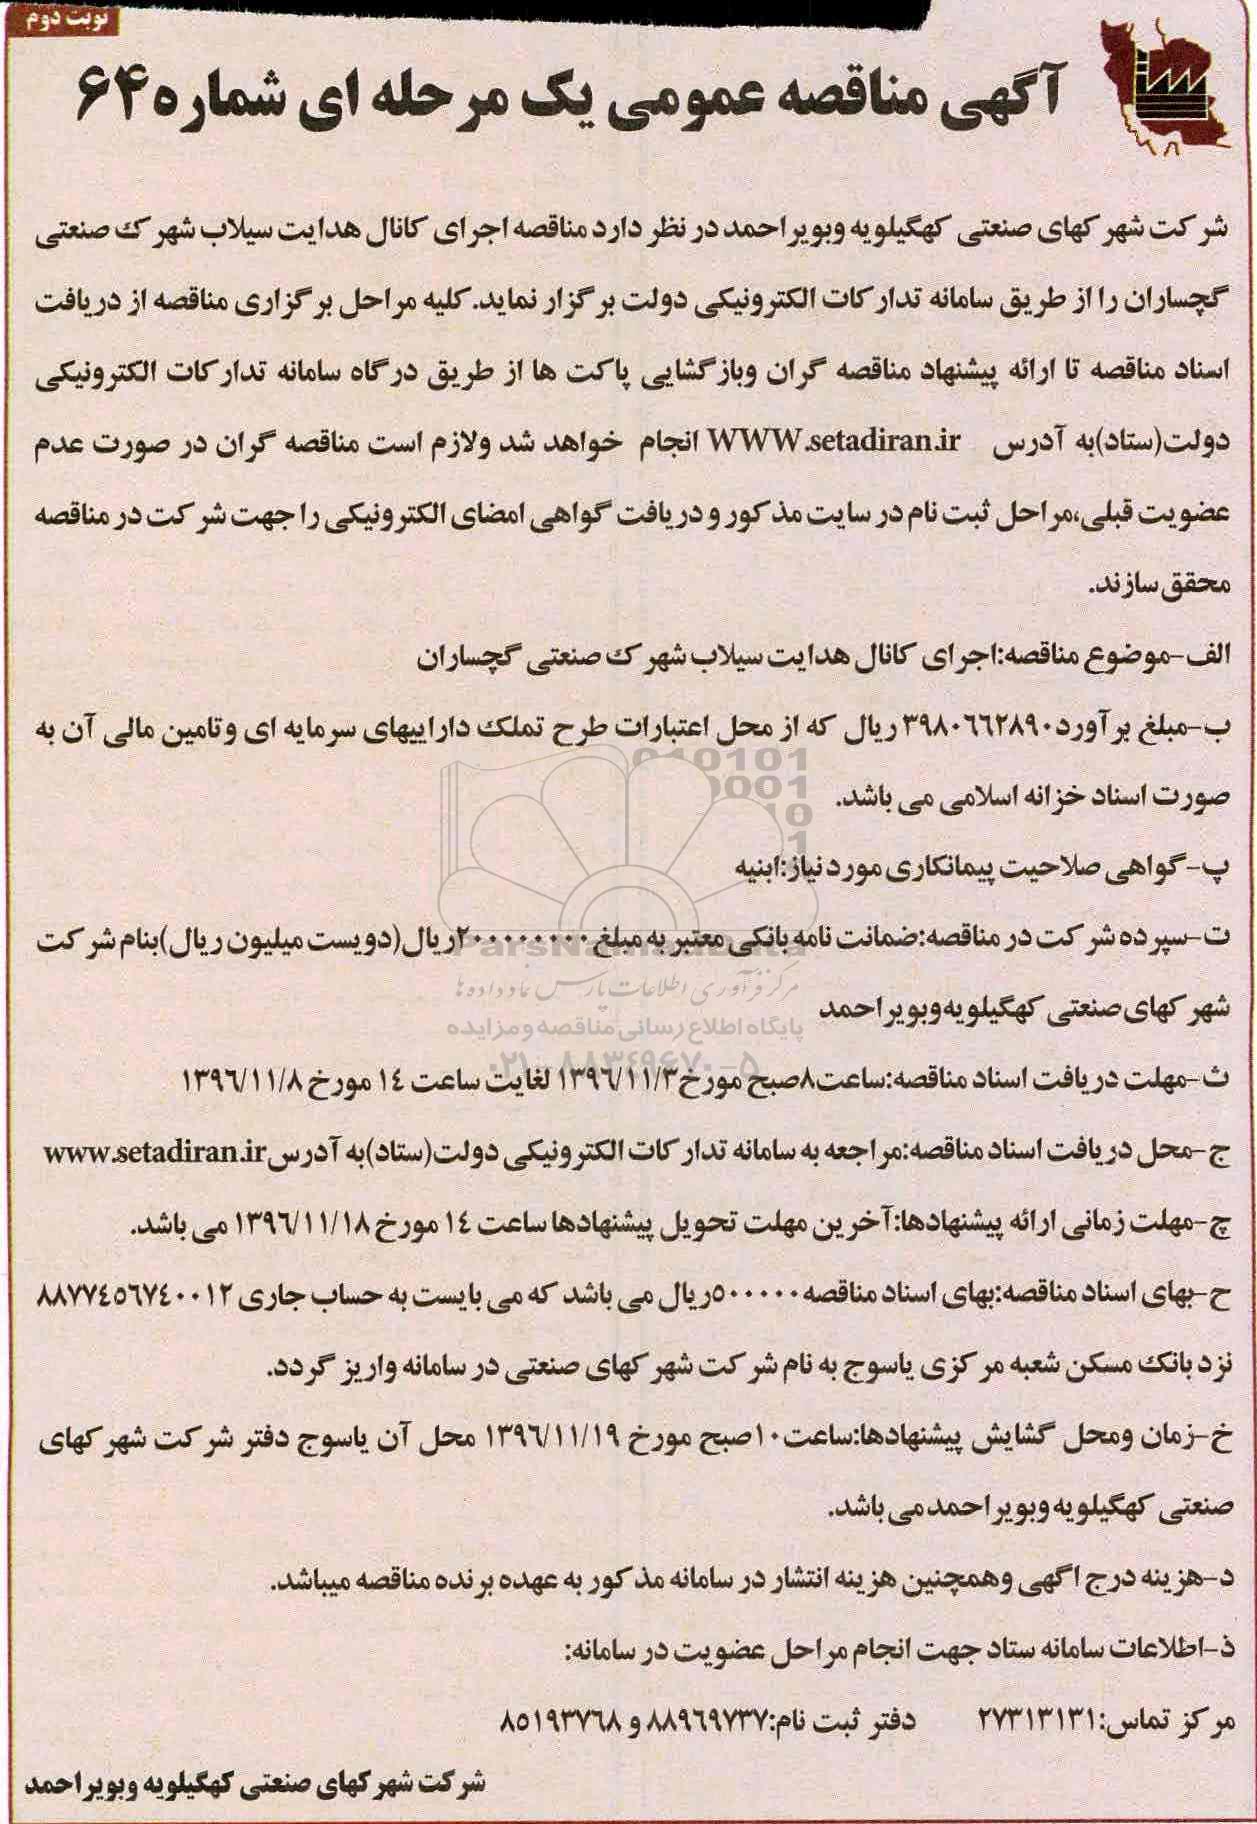 نوبت دوم
آگهی مناقصه عمومی یک مرحله ای شماره ۶۴
شرکت شهرکهای صنعتی کهگیلویه وبویراحمد در نظر دارد مناقصه اجرای کانال هدایت سیلاب شهرک صنعتی
گچساران را از طریق سامانه تدارکات الکترونیکی دولت برگزار نماید. کلیه مراحل برگزاری مناقصه از دریافت
اسناد مناقصه تا ارائه پیشنهاد مناقصه گران وبازگشایی پاکت ها از طریق درگاه سامانه تدارکات الکترونیکی
دولت(ستاد)به آدرس WWW.setadiran.ir انجام خواهد شد ولازم است مناقصه گران در صورت عدم
عضویت قبلی،مراحل ثبت نام در سایت مذکور و دریافت گواهی امضای الکترونیکی را جهت شرکت در مناقصه
محقق سازند.
الف-موضوع مناقصه:اجرای کانال هدایت سیلاب شهرک صنعتی گچساران
ب-مبلغ برآورد۳۹۸۰۶۶۲۸۹۰ ریال که از محل اعتبارات طرح تملک داراییهای سرمایه ای وتامین مالی آن به
صورت اسناد خزانه اسلامی می باشد.
010101
0001
10
1
پ-گواهی صلاحیت پیمانکاری مورد نیاز:ابنیه
ت-سپرده شرکت در مناقصه:ضمانت نامه بانکی معتبر به مبلغ ۲۰۰۰۰۰۰۰۰۰ریال(دویست میلیون ریال)بنام شرکت
ParsNamadData
مرکز فرآوری اطلاعات پارس نماد داده ها
شهرکهای صنعتی کهگیلویه وبویراحمد
پایگاه اطلاع رسانی مناقصه و مزایده
۰۲۱-۸۸۳۴۹۶۷۰-۵
ث-مهلت دریافت اسناد مناقصه:ساعت۸صبح مورخ۱۳۹۶/۱۱/۳ لغایت ساعت ۱۴ مورخ ۱۳۹۶/۱۱/۸
ج-محل دریافت اسناد مناقصه:مراجعه به سامانه تدارکات الکترونیکی دولت(ستاد)به آدرسwww.setadiran.ir
چ-مهلت زمانی ارائه پیشنهادها:آخرین مهلت تحویل پیشنهادها ساعت ۱۴ مورخ ۱۳۹۶/۱۱/۱۸ می باشد.
ح-بهای اسناد مناقصه:بهای اسناد مناقصه ۵۰۰۰۰۰ریال می باشد که می بایست به حساب جاری ۸۸۷۷۴۵۶۷۴۰۰۱۲
نزد بانک مسکن شعبه مرکزی یاسوج به نام شرکت شهرکهای صنعتی در سامانه واریز گردد.
خ-زمان ومحل گشایش پیشنهادها:ساعت۱۰صبح مورخ ۱۳۹۶/۱۱/۱۹ محل آن یاسوج دفتر شرکت شهرکهای
صنعتی کهگیلویه وبویراحمد می باشد.
د-هزینه درج اگهی وهمچنین هزینه انتشار در سامانه مذکور به عهده برنده مناقصه میباشد.
ذ-اطلاعات سامانه ستاد جهت انجام مراحل عضویت در سامانه:
مرکز تماس:۲۷۳۱۳۱۳۱ دفتر ثبت نام:۸۸۹۶۹۷۳۷ و ۸۵۱۹۳۷۶۸
شرکت شهرکهای صنعتی کهگیلویه وبویراحمد